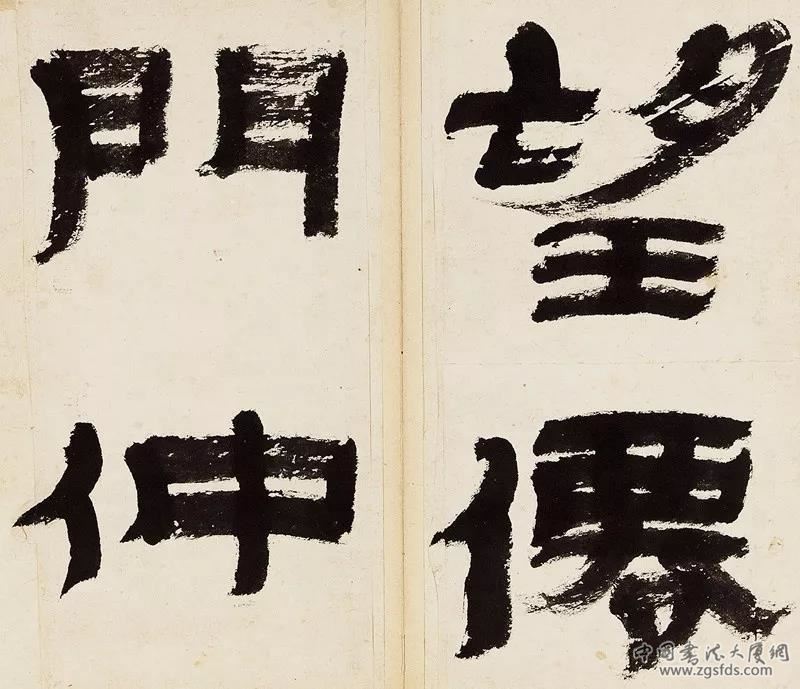 望僊
門仲
中國書法大厦網
www.zgsfds.com